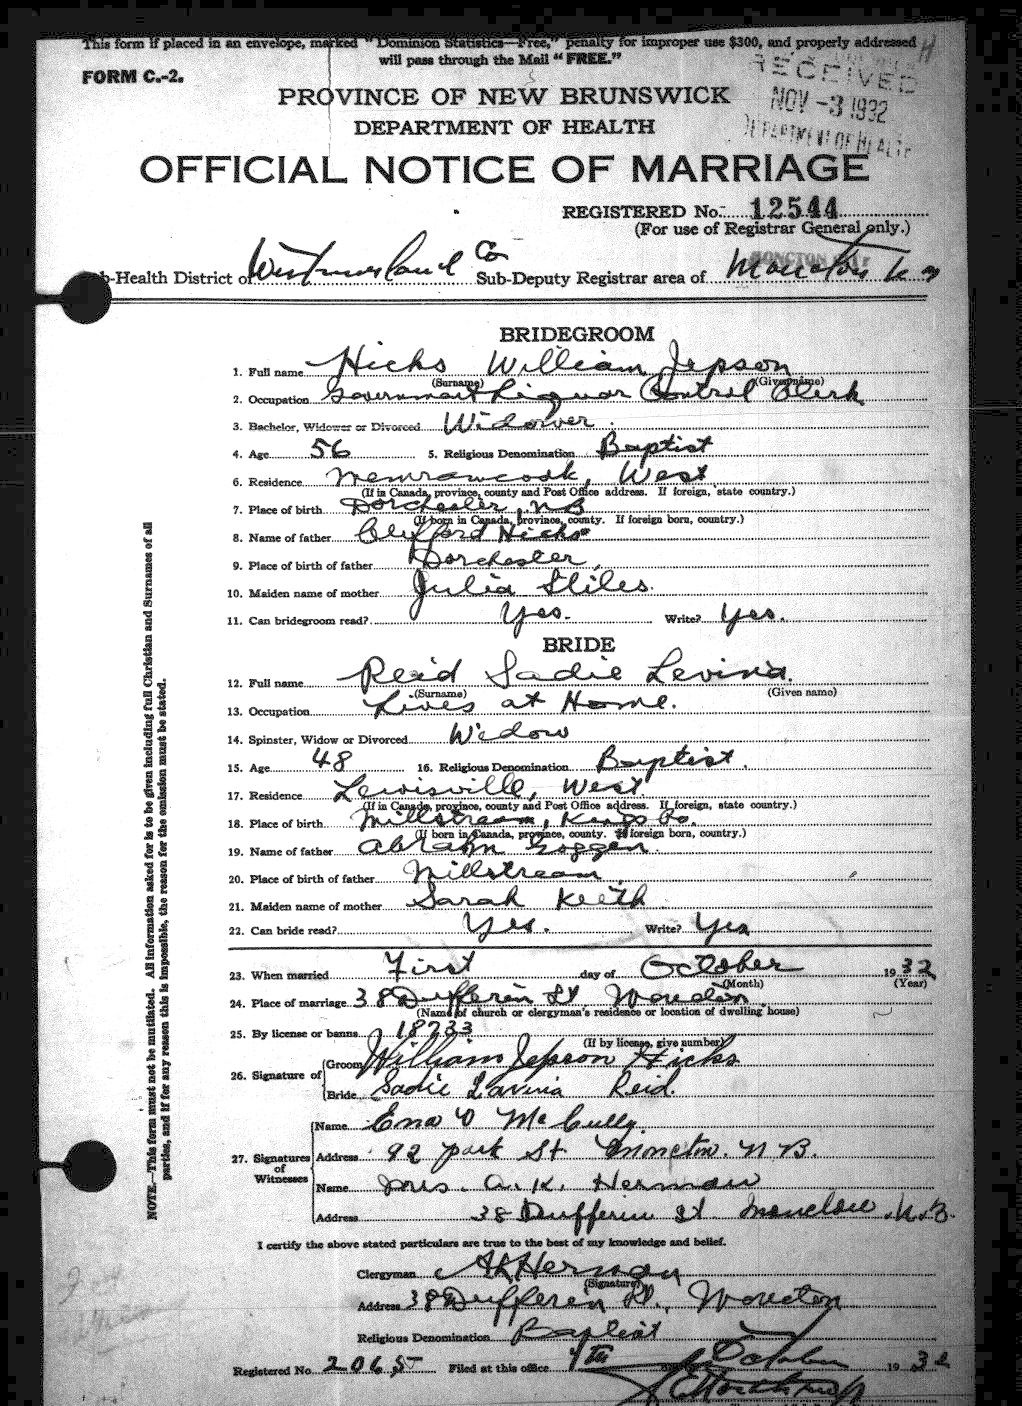 This form if placed in an envelope, marked "Dominion Statistics—Free," penalty for improper use $300, and properly addressed
will pass through the Mail "FREE."
FORM C.-2.
RECEIVED
NOV -3 1932
DEPARTMENT OF HEALTH
PROVINCE OF NEW BRUNSWICK
DEPARTMENT OF HEALTH
OFFICIAL NOTICE OF MARRIAGE
REGISTERED No. 12544
(For use of Registrar General only.)
-Health District of Westmorland Co Sub-Deputy Registrar area of Moncton
BRIDEGROOM
1. Full name Hicks William Jepson
(Surname) (Given name)
2. Occupation Government Liquor Control Clerk
3. Bachelor, Widower or Divorced Widower.
4. Age 56 5. Religious Denomination Baptist
6. Residence Memramcook, West
(If in Canada, province, county and Post Office address. If foreign, state country.)
7. Place of birth Dorchester, NB
(If born in Canada, province, county. If foreign born, country.)
8. Name of father Clifford Hicks
9. Place of birth of father Dorchester,
10. Maiden name of mother Julia Stiles.
11. Can bridegroom read? Yes. Write? Yes.
BRIDE
12. Full name Reid Sadie Levina.
(Surname) (Given name)
13. Occupation Lives at Home.
14. Spinster, Widow or Divorced Widow
15. Age 48 16. Religious Denomination Baptist.
17. Residence Lewisville, West.
(If in Canada, province, county and Post Office address. If foreign, state country.)
18. Place of birth Millstream, Kings Co.
(If born in Canada, province, county. If foreign born, country.)
19. Name of father Abrahm Goggen.
20. Place of birth of father Millstream
21. Maiden name of mother Sarah Keith
22. Can bride read? Yes. Write? Yes
23. When married First day of October 1932
(Month) (Year)
24. Place of marriage 38 Dufferin St, Moncton.
(Name of church or clergyman's residence or location of dwelling house)
25. By license or banns 18733
(If by license, give number)
26. Signature of
Groom William Jepson Hicks
Bride Sadie Lavina Reid.
27. Signatures of Witnesses
Name Ena V McCully.
Address 92 Park St Moncton. N B.
Name Mrs. A. K. Herman
Address 38 Dufferin St Moncton. N. B.
I certify the above stated particulars are true to the best of my knowledge and belief.
Clergyman A K Herman
(Signature)
Address 38 Dufferin St., Moncton
Religious Denomination Baptist
Registered No. 2065 Filed at this office 7th October 1932
NOTE.—This form must not be mutilated. All information asked for is to be given including full Christian and Surnames of all
parties, and if for any reason this is impossible, the reason for the omission must be stated.